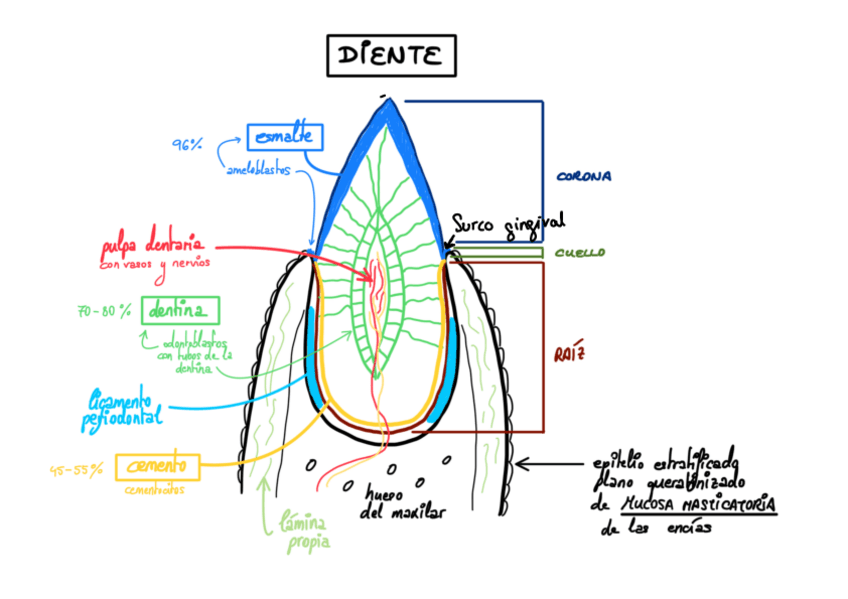 DIENTE
96%
esmalte
ameloblastos
CORONA
Surco gingival
CUELLO
pulpa dentaria
con vasos y nervios
70-80%
dentina
odontoblastos
con tubos de la
dentina
RAÍZ
ligamento
periodontal
45-55%
cemento
cementocitos
hueso
del maxilar
lámina
propia
epitelio estratificado
plano queratinizado
de MUCOSA MASTICATORIA
de las encías